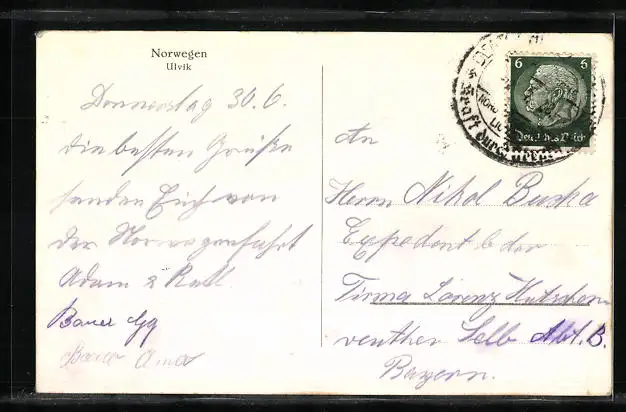 Norwegen
Ulvik
Donnerstag 30.6.
die besten Grüße
senden Euch von
der Norwegenfahrt
Adam &
Bauer
Bauer
6 6
Deutsches Reich
Kraft durch
An
Herrn Nikol
Expedient b der
Firma Lorenz Hutschen
reuther Selb Abt. B.
Bayern.